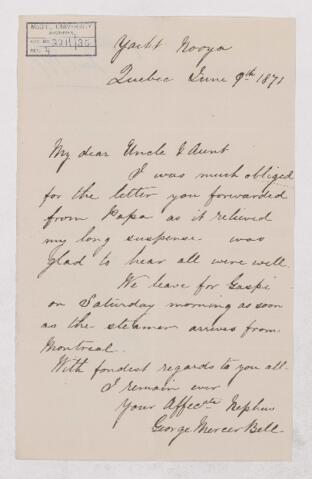 McGILL UNIVERSITY
ARCHIVES
ACC. NO.
REF.
Yacht Nooya
Quebec June 9th 1871
My dear Uncle & Aunt
I was much obliged
for the letter you forwarded
from Papa as it relieved
my long suspense. was
glad to hear all were well.
We leave for Gaspi
on Saturday morning as soon
as the steamer arrives from
Montreal.
With fondest regards to you all.
I remain ever
Your Affecate Nephew
George Mercer Bell.